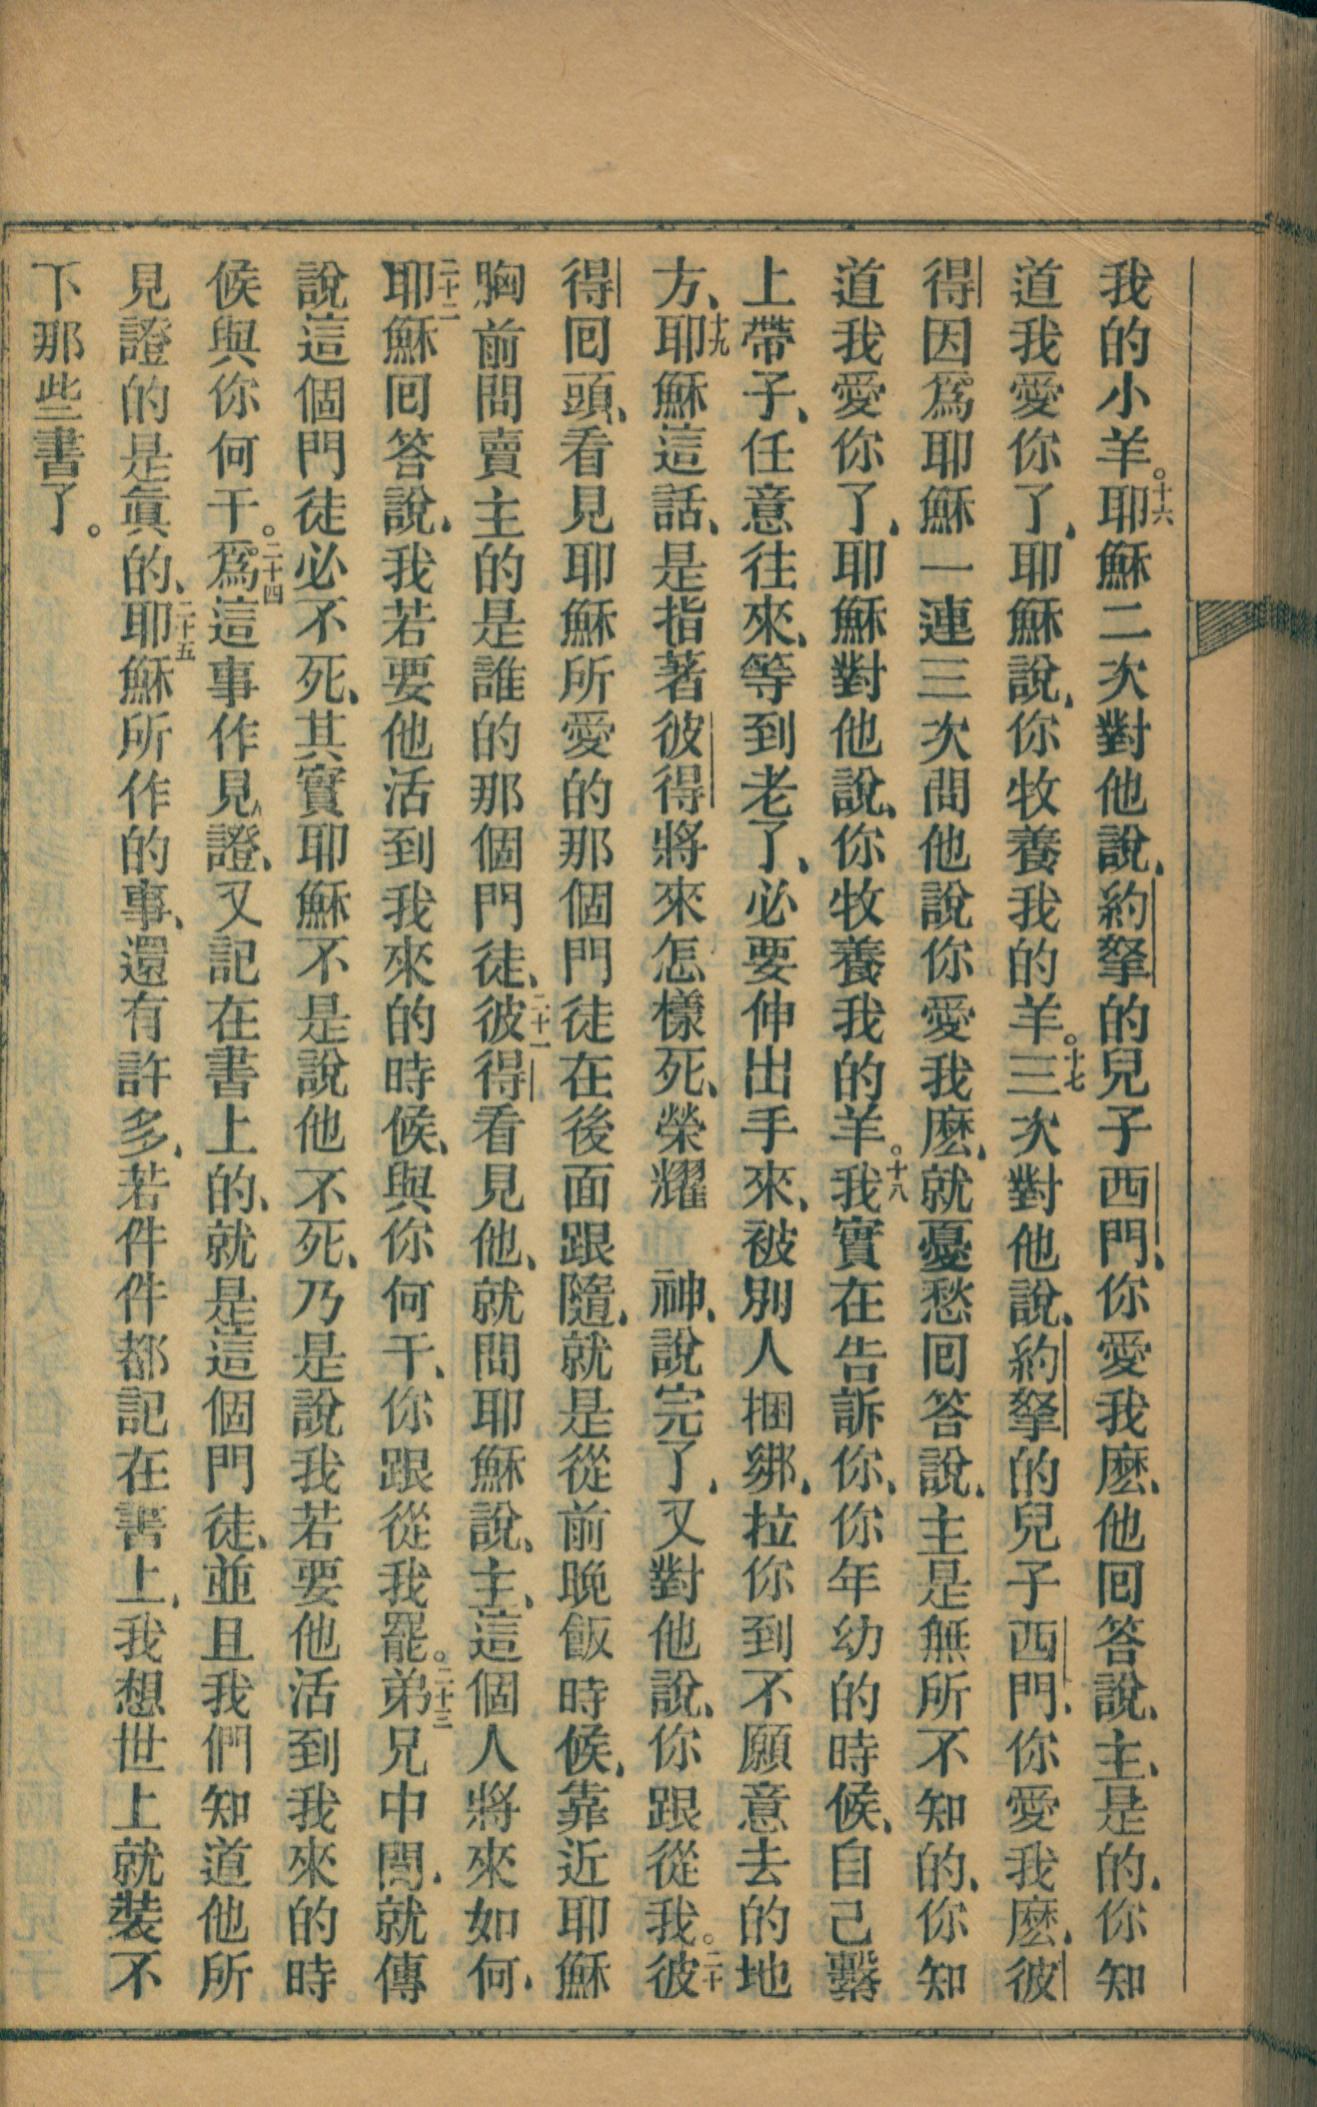 我的小羊。十六耶穌二次對他說、約拏的兒子西門、你愛我麽、他回答說、主、是的、你知
道我愛你了、耶穌說、你牧養我的羊。十七三次對他說、約拏的兒子西門、你愛我麽、彼
得因爲耶穌一連三次問他說你愛我麽、就憂愁回答說、主是無所不知的、你知
道我愛你了、耶穌對他說、你牧養我的羊。十八我實在告訴你、你年幼的時候、自己繫
上帶子、任意往來、等到老了、必要伸出手來、被別人捆綁、拉你到不願意去的地
方、十九耶穌這話、是指著彼得將來怎樣死、榮耀 神、說完了、又對他說、你跟從我。二十彼
得回頭、看見耶穌所愛的那個門徒在後面跟隨、就是從前晚飯時候、靠近耶穌
胸前問賣主的是誰的那個門徒、二十一彼得看見他、就問耶穌說、主、這個人將來如何、
二十二耶穌回答說、我若要他活到我來的時候、與你何干、你跟從我罷。二十三弟兄中間、就傳
說這個門徒必不死、其實耶穌不是說他不死、乃是說我若要他活到我來的時
候與你何干。二十四爲這事作見證、又記在書上的、就是這個門徒、並且我們知道他所
見證的是眞的、二十五耶穌所作的事、還有許多、若件件都記在書上、我想世上就裝不
下那些書了。